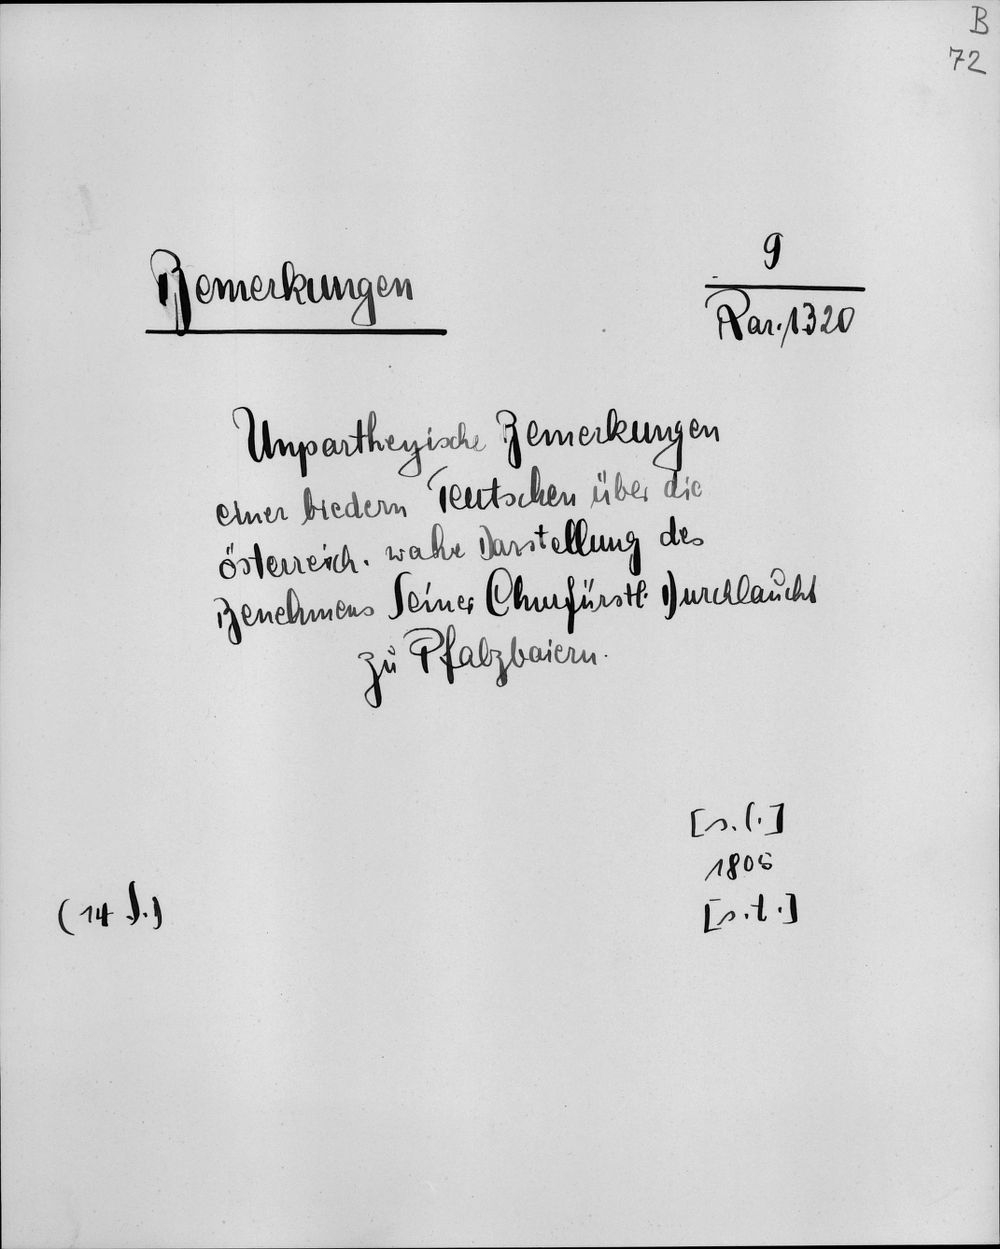 B
72
9
Bemerkungen
Rar. 1320
Unpartheyische Bemerkungen
einer biedern Teutschen über die
österreich. wahre Darstellung des
Benehmens Seiner Churfürstl. Durchlaucht
zu Pfalzbaiern.
[s. l.]
1805
(14 S.)
[s. t.]